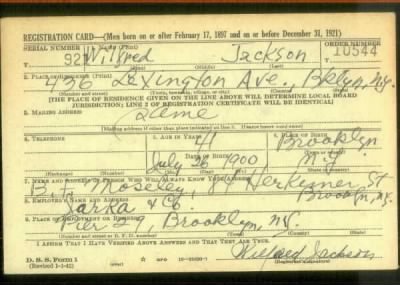 REGISTRATION CARD—(Men born on or after February 17, 1897 and on or before December 31, 1921)
SERIAL NUMBER 1. NAME (Print) ORDER NUMBER
T 921 Wilfred Jackson T 10544
(First) (Middle) (Last)
2. PLACE OF RESIDENCE (Print)
436 Lexington Ave., Bklyn, N.Y.
(Number and street) (Town, township, village, or city) (County) (State)
[THE PLACE OF RESIDENCE GIVEN ON THE LINE ABOVE WILL DETERMINE LOCAL BOARD
JURISDICTION; LINE 2 OF REGISTRATION CERTIFICATE WILL BE IDENTICAL]
3. MAILING ADDRESS
Same
[Mailing address if other than place indicated on line 2. If same insert word same]
4. TELEPHONE 5. AGE IN YEARS 6. PLACE OF BIRTH
41 Brooklyn
DATE OF BIRTH
July 26 1900 N.Y.
(Exchange) (Number) (Mo.) (Day) (Yr.) (State or country)
7. NAME AND ADDRESS OF PERSON WHO WILL ALWAYS KNOW YOUR ADDRESS
Moseley, Herkimer St
Brooklyn, N.Y.
8. EMPLOYER'S NAME AND ADDRESS
& Co.
9. PLACE OF EMPLOYMENT OR BUSINESS
Pier 29, Brooklyn, N.Y.
(Number and street or R. F. D. number) (Town) (County) (State)
I AFFIRM THAT I HAVE VERIFIED ABOVE ANSWERS AND THAT THEY ARE TRUE.
D. S. S. Form 1
(Revised 1-1-42) GPO
Wilfred Jackson
(Registrant's signature)